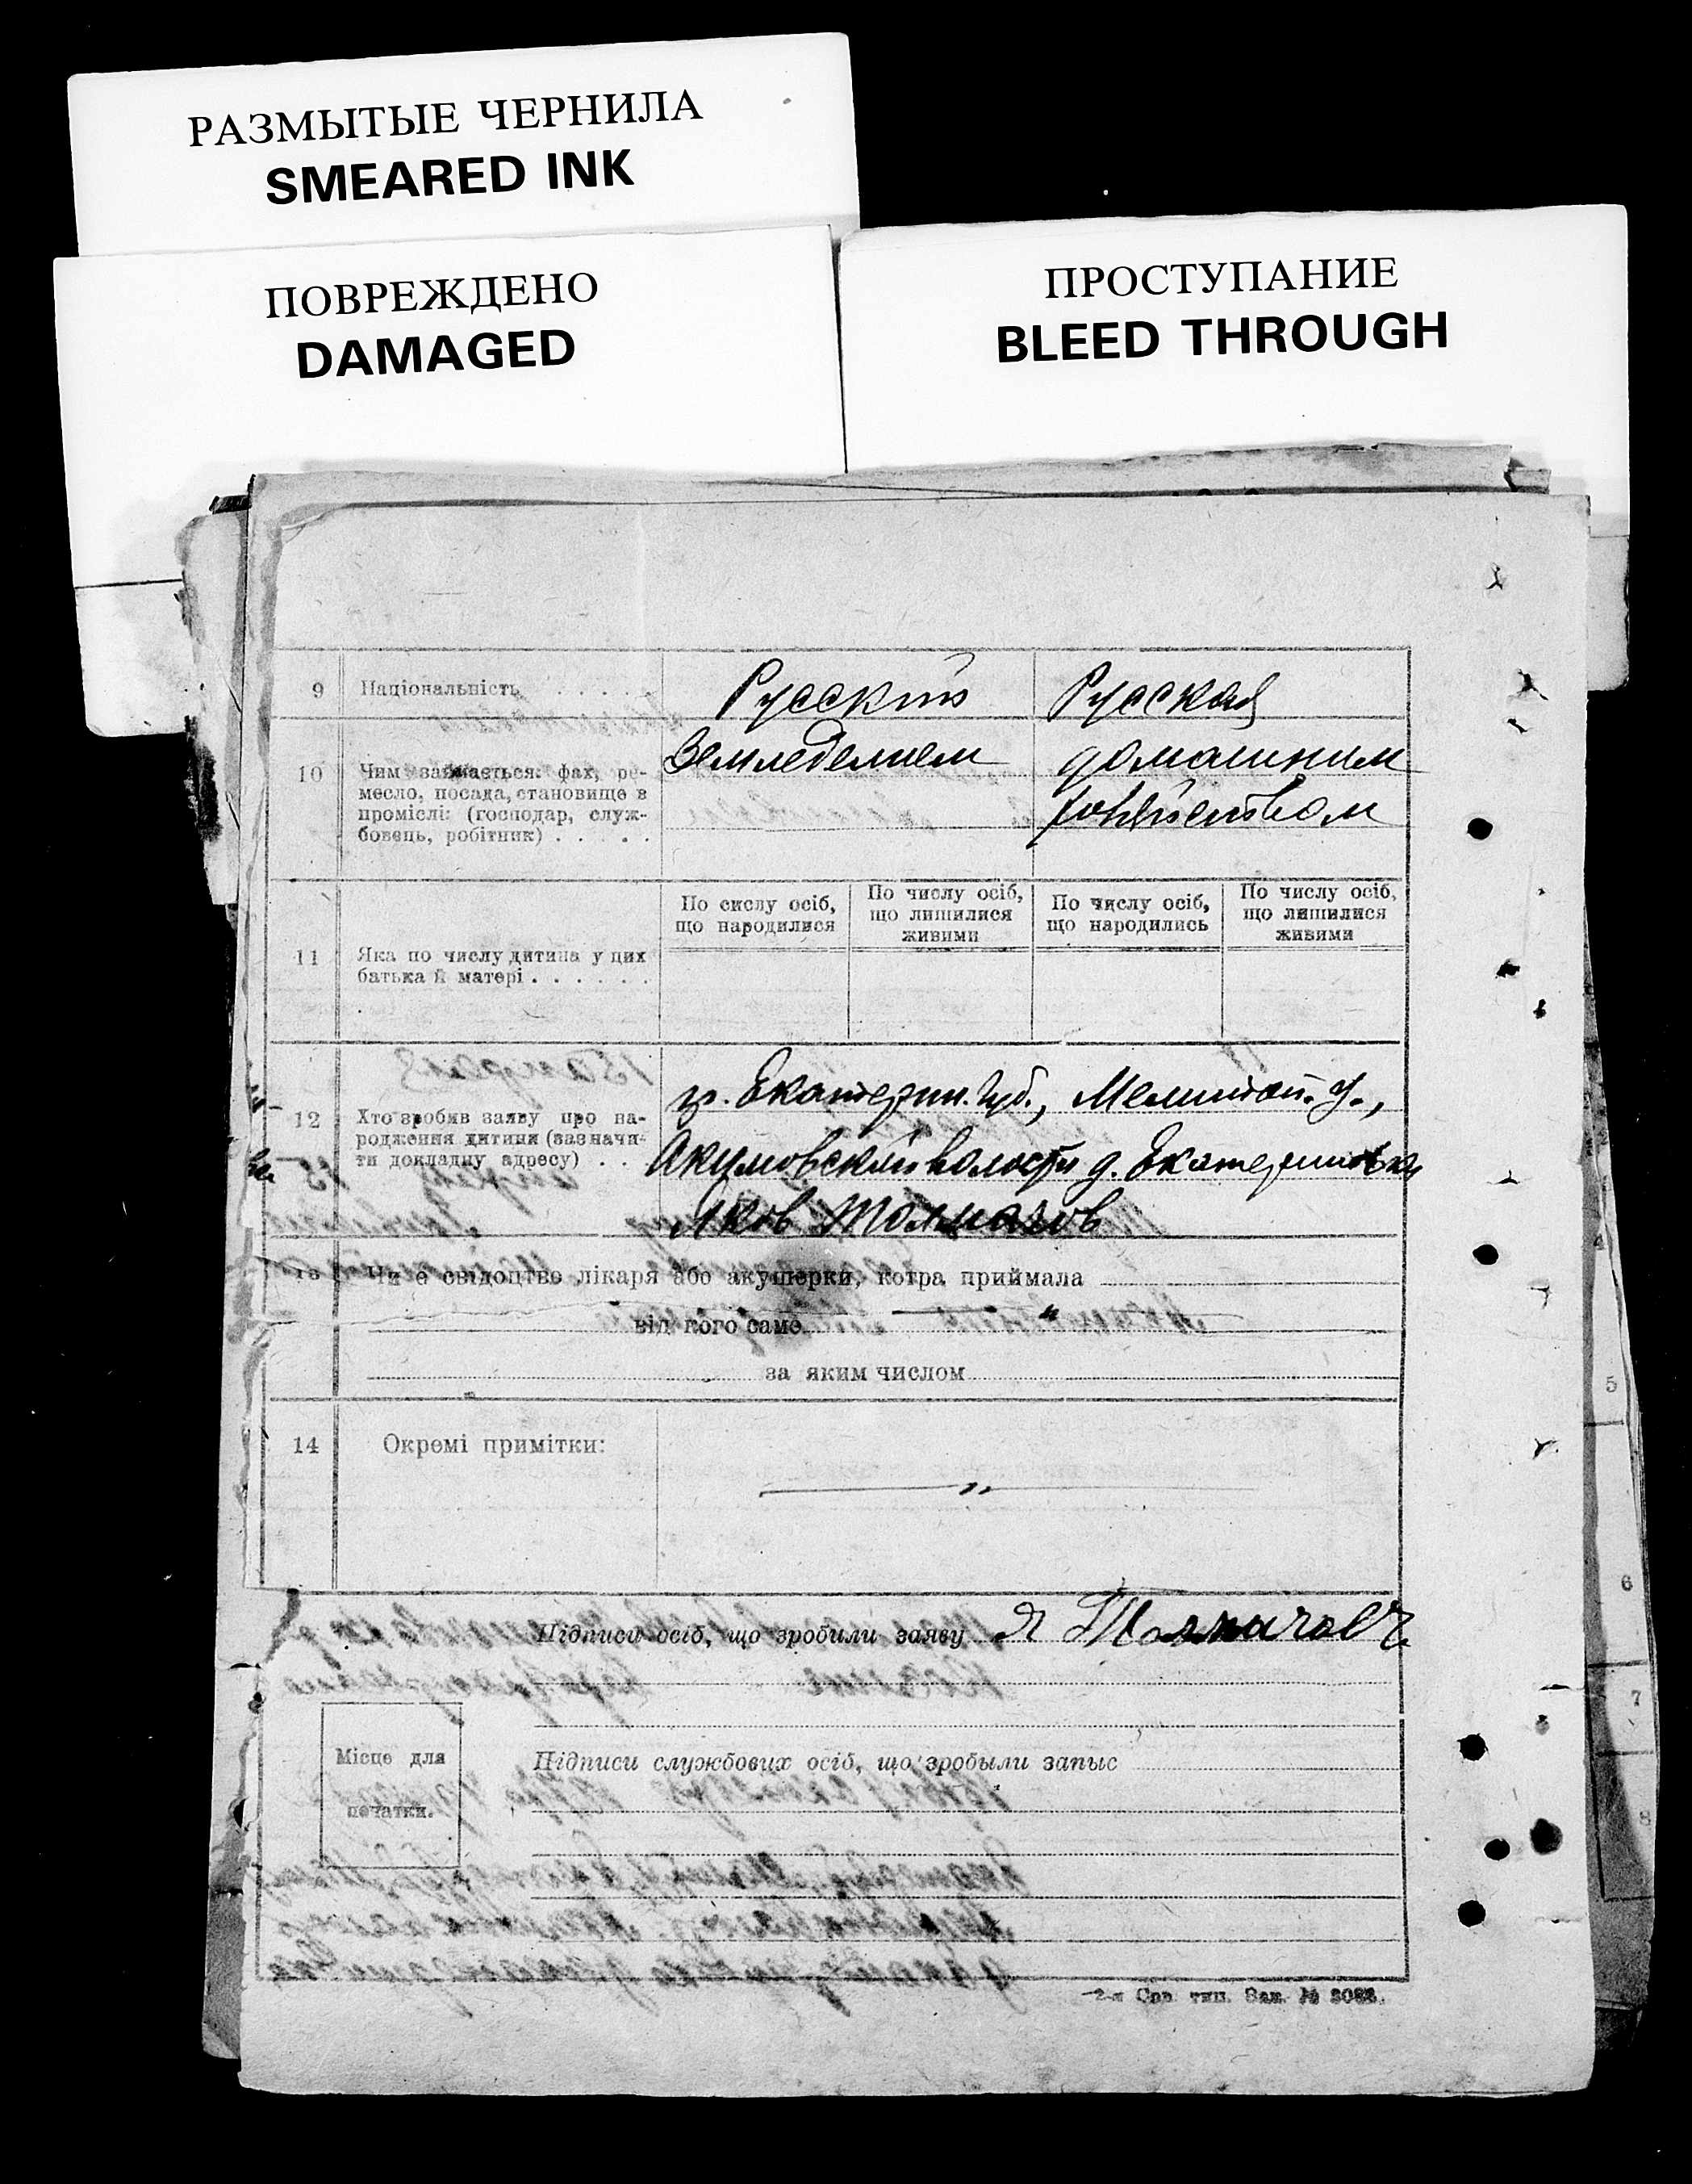 РАЗМЫТЫЕ ЧЕРНИЛА
SMEARED INK
ПОВРЕЖДЕНО
DAMAGED
ПРОСТУПАНИЕ
BLEED THROUGH
9 Національність . . . . . Русский Русская
10 Чим займається: фах, ре-
месло, посада, становище в
промислі: (господар, служ-
бовець, робітник) . . . . .
Земледелием
домашним
хозяйством
11 Яка по числу дитина у цих
батька й матері . . . . . .
По числу осіб,
що народилися
По числу осіб,
що лишилися
живими
По числу осіб,
що народились
По числу осіб,
що лишилися
живими
12 Хто зробив заяву про на-
родження дитини (зазначи-
ти докладну адресу) . .
гр. Екатерин. губ., Мелитоп. у.,
волости д. Екатериновки
Яков Толмачов
13 Чи є свідоцтво лікаря або акушерки, котра приймала
від кого саме "
за яким числом
14 Окремі примітки:
"
Підписи осіб, що зробили заяву Я Толмачов
Місце для
печатки.
Підписи службових осіб, що зробылы запыс
5
6
7
8